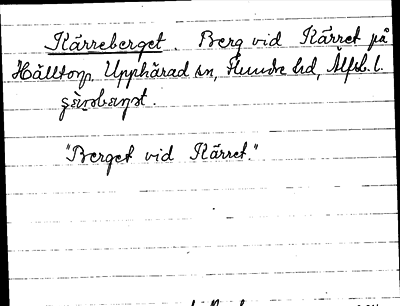 Kärreberget. Berg vid Kärret på
Hälltorp, Upphärad sn, Flundre hd, Älfsb. l.
"Berget vid Kärret."